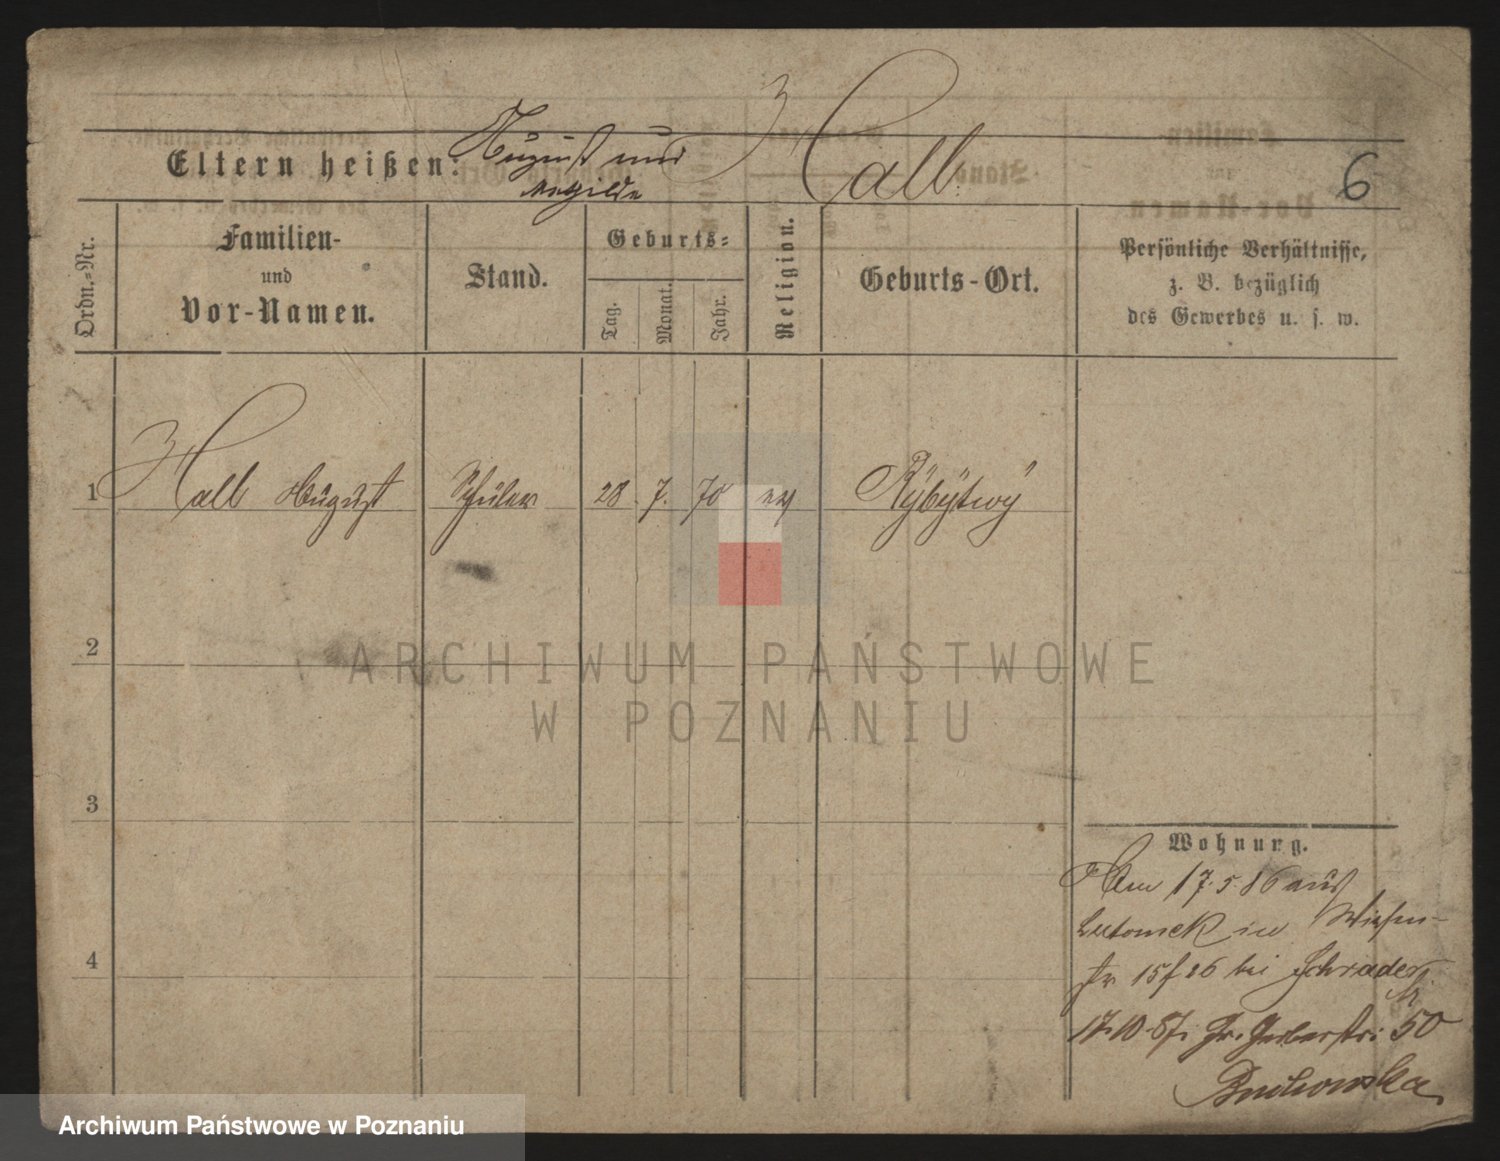 Eltern heißen: August und Halb 6
Ordn.-Nr.
Familien-
und
Vor-Namen.
Stand.
Geburts-
Tag.
Monat.
Jahr.
Religion.
Geburts-Ort.
Persönliche Verhältnisse,
z. B. bezüglich
des Gewerbes u. s. w.
1 Halb August Schüler 28. 7. 70 ev Rybytwy
2
3
4
Wohnung.
Am 17.5.86 aus
Lutomek in Wiesen-
str 15/26 bei Schrader
17.10.87. Gr. Gerberstr: 50
ARCHIWUM PAŃSTWOWE
W POZNANIU
Archiwum Państwowe w Poznaniu